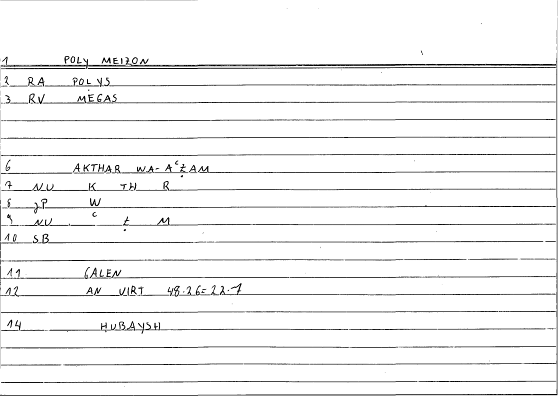 1 POLY MEIZON
2 RA POLYS
3 RV MEGAS
6 AKTHAR WA-AʿẓAM
7 NU K TH R
8 JP W
9 NU ʿ ẓ M
10 SB
11 GALEN
12 AN VIRT 48.26=22.7
14 HUBAYSH